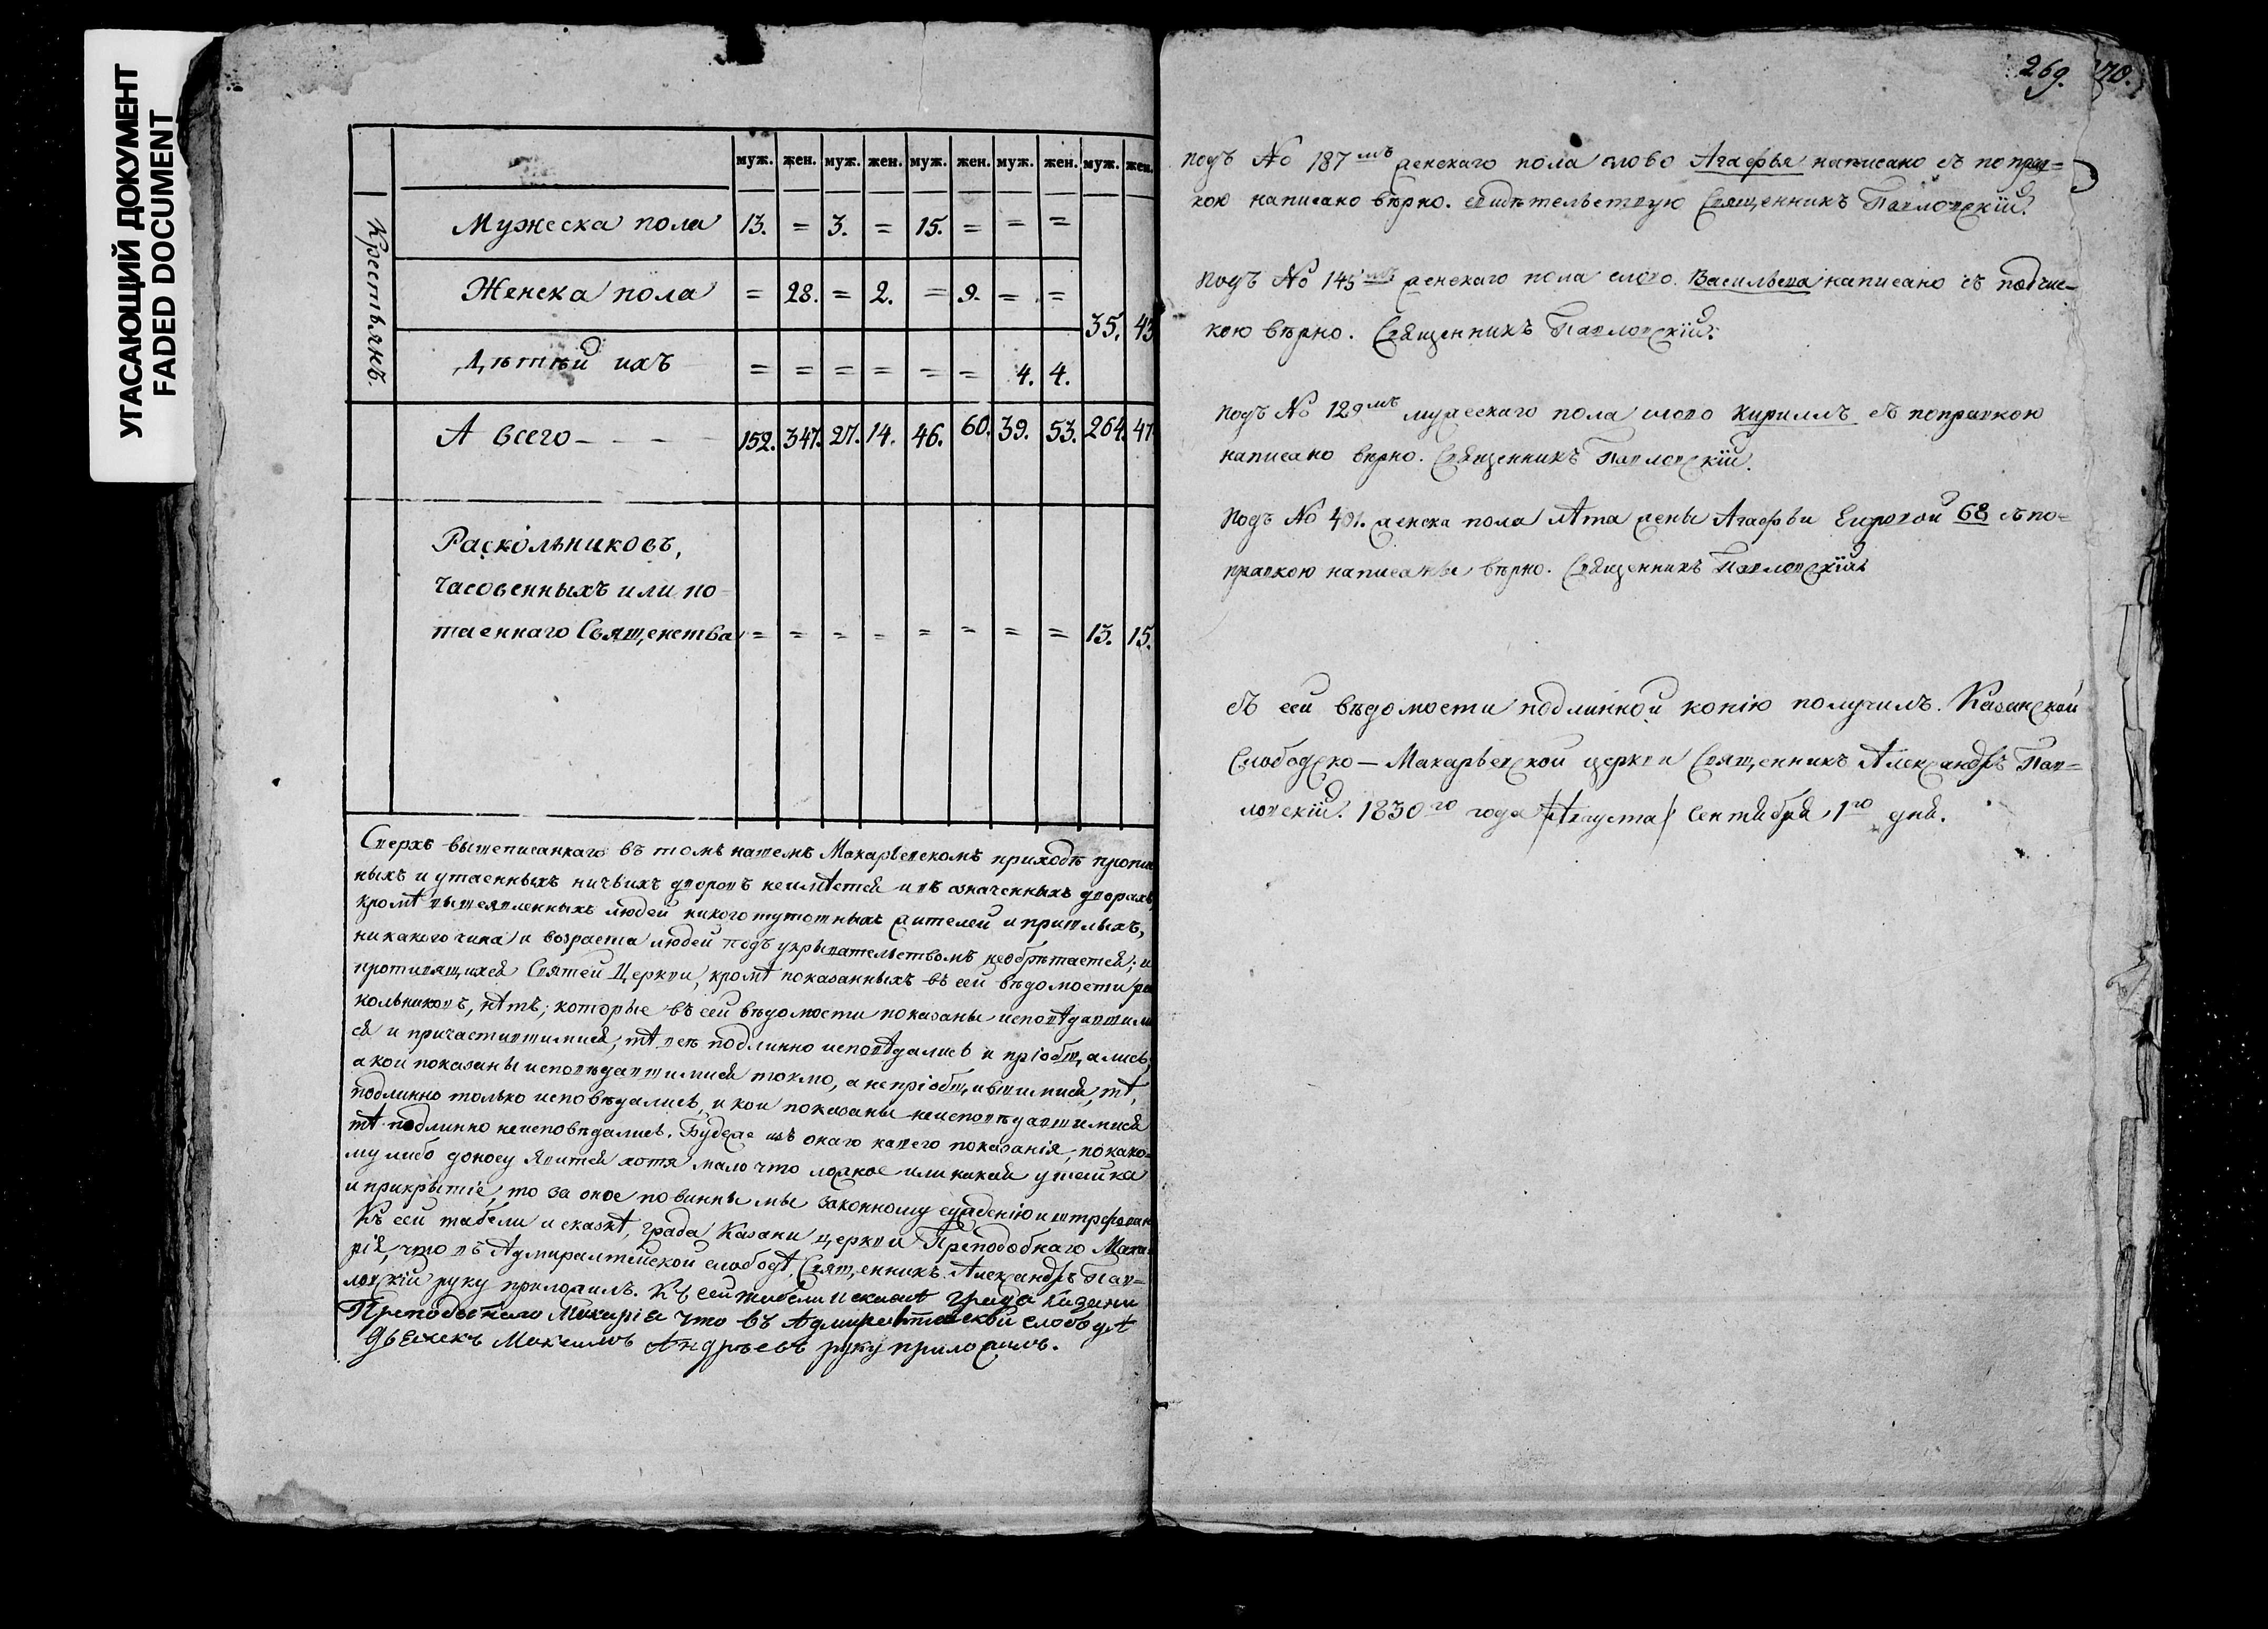 УГАСАЮЩИЙ ДОКУМЕНТ
FADED DOCUMENT
муж. жен. муж. жен. муж. жен. муж. жен. муж. жен.
Крестьянъ.
Мужеска пола 13. = 3. = 15. = = =
Женска пола = 28. = 2. = 9. = =
35. 43
Дѣтѣй ихъ = = = = = = 4. 4.
А всего - - - - 152. 347. 27. 14. 46. 60. 39. 53. 264. 47
Раскольниковъ,
часовенныхъ или по
таеннаго Священства = = = = = = = = 13. 15.
Сверхъ вышеписаннаго въ томъ нашемъ Макарьевскомъ приходѣ пропис
ныхъ и утаенныхъ ничьихъ дворовъ неимѣется и въ означенныхъ дворахъ,
кромѣ вышеявленныхъ людей никого тутошныхъ жителей и пришлыхъ,
никакого чина и возраста людей подъ укрывательствомъ необрѣтается; и
противящихся Святей Церкви, кромѣ показанныхъ въ сей вѣдомости рас
кольниковъ, нѣтъ; которые въ сей вѣдомости показаны исповѣдавшими
ся и причастившимися, тѣ всѣ подлинно исповѣдались и пріобщались,
а кои показаны исповѣдавшимися токмо, а непріобщившимися, тѣ,
подлинно только исповѣдались, и кои показаны неисповѣдавшимися
тѣ подлинно неисповѣдались. Будеже изъ онаго нашего показанія, по како-
му либо доносу явится хотя мало что ложное или какая утайка
и прикрытіе, то за оное повинны мы законному сужденію и штрафован
Къ сей табели и сказкѣ, града Казани церкви Преподобнаго Мака
рія, что въ Адмиралтейской слободѣ, Священникъ Александръ Пав-
ловскій руку приложилъ. Къ сей табели и сказкѣ града Казани
Преподобнаго Макарія что въ Адмиралтейской слободѣ
Дьячекъ Максимъ Андреевъ руку приложилъ.
269. 70.
Подъ № 187мъ женскаго пола слово Агафья написано съ поправ=
кою написано вѣрно. свидѣтельствую Священникъ Павловскій.
Подъ № 145мъ женскаго пола слово Васильева написано съ подчис-
кою вѣрно. Священникъ Павловскій.
Подъ № 129мъ мужескаго пола слово Кириллъ съ поправкою
написано вѣрно. Священникъ Павловскій.
Подъ № 401. женска пола лѣта жены Агафьи Егоровой 68 съ по=
правкою написаны вѣрно. Священникъ Павловскій
Съ сей вѣдомости подлинной копію получилъ. Казанской
Слободско-Макарьевской церкви Священникъ Александръ Пав=
ловскій. 1830го года /Августа/ Сентября 1го дня.